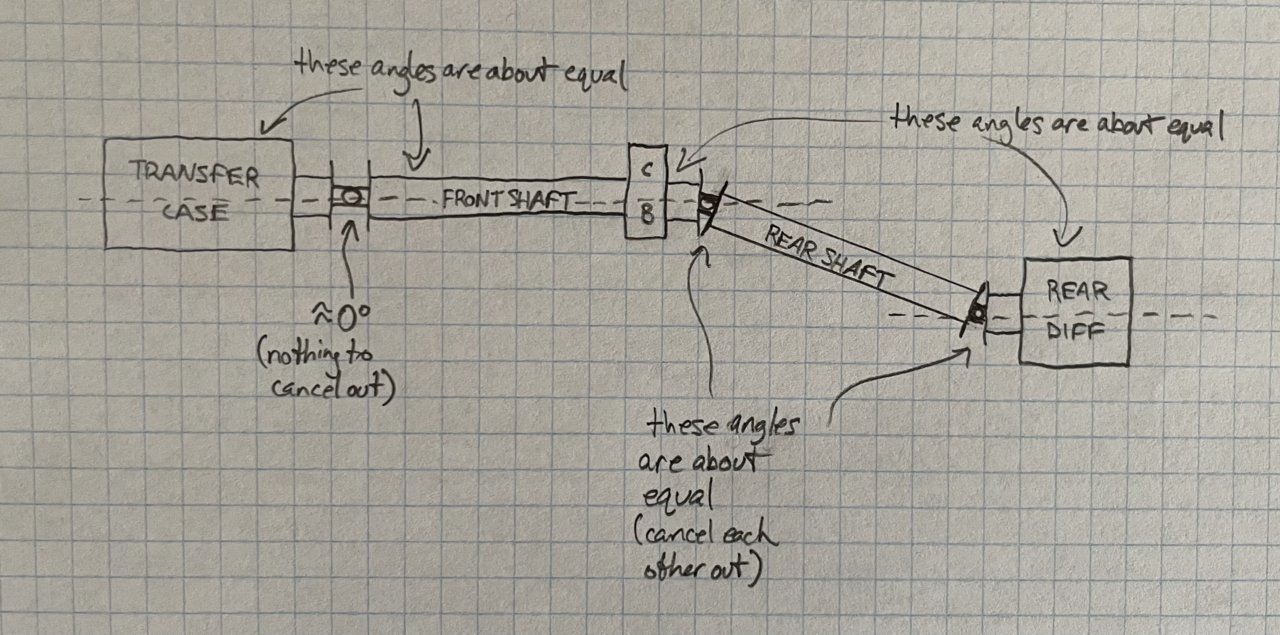 these angles are about equal
these angles are about equal
TRANSFER
CASE
FRONT SHAFT
C
B
REAR SHAFT
REAR
DIFF
≈0°
(nothing to
cancel out)
these angles
are about
equal
(cancel each
other out)